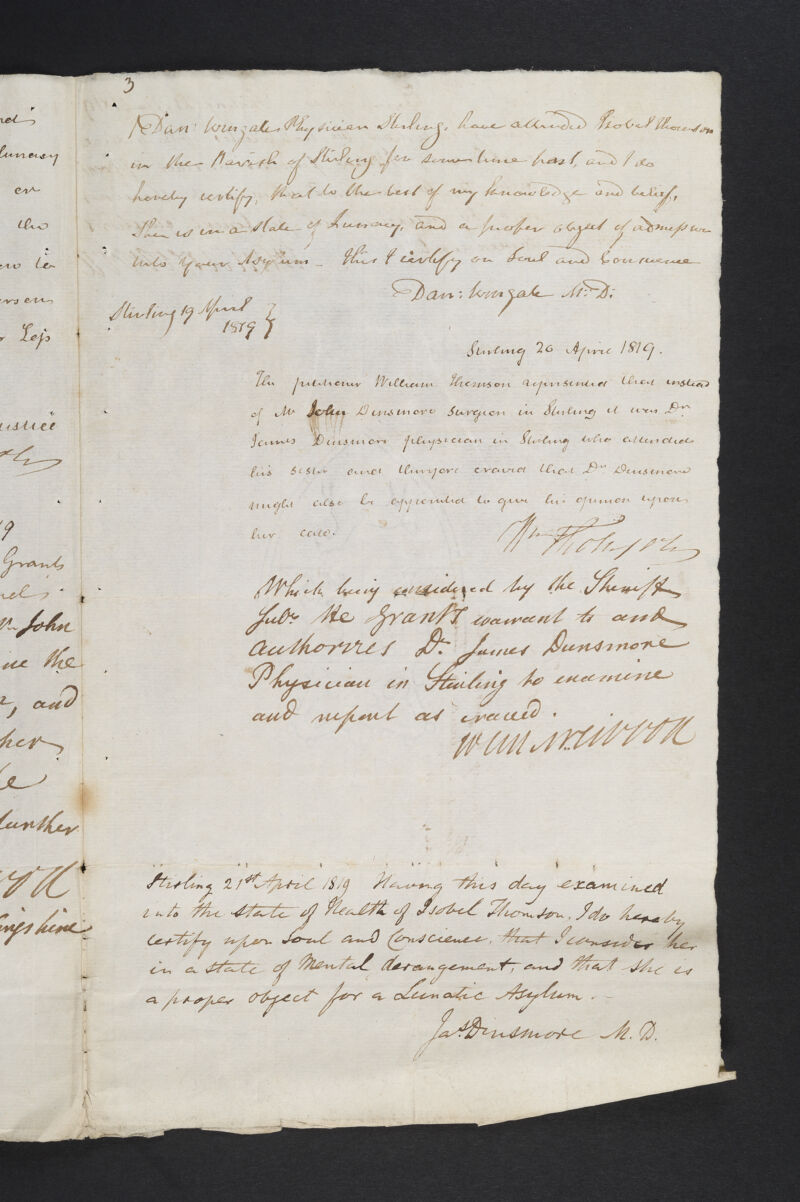 3
I Dan: Wingate Physician Stirling, have attended Isobel Thomson
in the Parish of Stirling for some time past, and I do
hereby certify, that to the best of my knowledge and belief,
She is in a state of Lunacy, and a proper object of admission
into your Asylum – this I certify on Soul and Conscience
Dan: Wingate M: D:
Stirling 19 April
1819
Stirling 20 April 1819.
The petitioner William Thomson represented that instead
of Mr John Dinsmore surgeon in Stirling it was Dr
James Dinsmore physician in Stirling who attended
his sister and therefore craved that Dr Dinsmore
might also be appointed to give his opinion upon
her case.
Wm Thomson
Which being considered by the Sheriff
Subs He Grants warrant to and
authorizes Dr James Dunsmore
Physician in Stirling to examine
and report as craved.
Stirling 21st April 1819 Having this day examined
into the state of Health of Isobel Thomson, I do hereby
certify upon Soul and Conscience, that I consider her
in a state of Mental derangement, and that she is
a proper object for a Lunatic Asylum. –
Jas Dinsmore M. D.
Lunacy
or
the
ustice
19
Grants
John
ine the
, and
her
further
ingshire